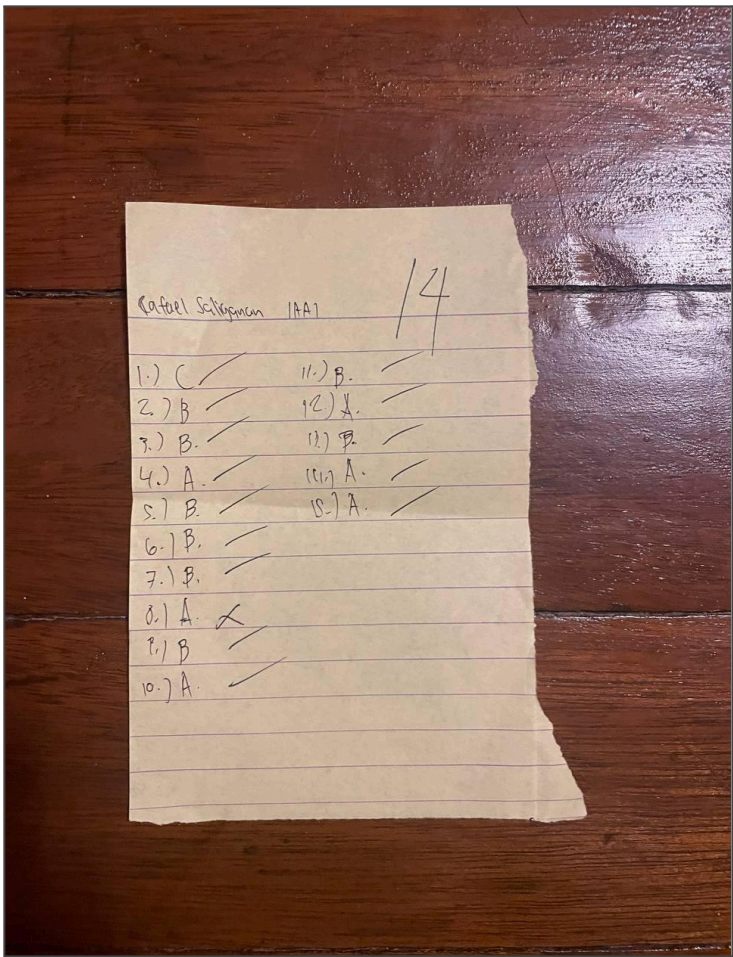 14
Rafael Saliganan 1AA1
1.) C
2.) B
3.) B.
4.) A.
5.) B.
6.) B.
7.) B.
8.) A.
9.) B
10.) A.
11.) B.
12.) A.
13.) B.
14.) A.
15.) A.